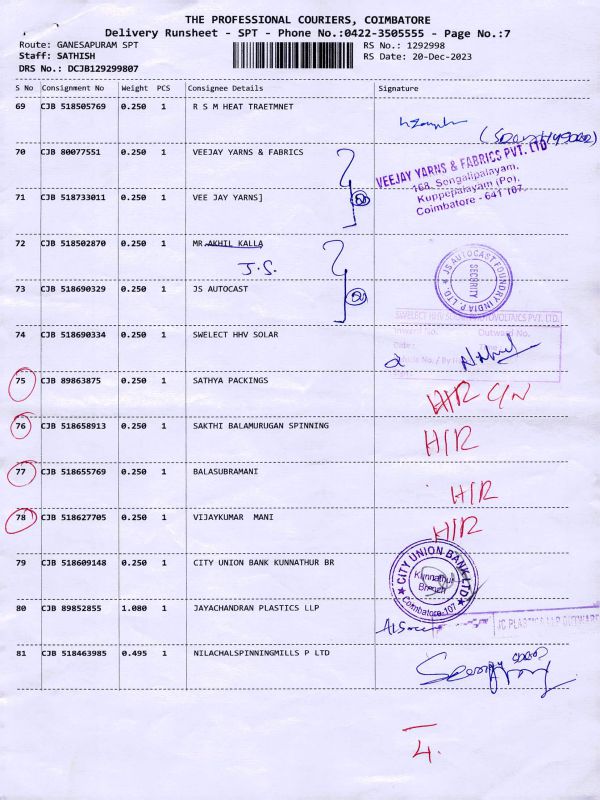 THE PROFESSIONAL COURIERS, COIMBATORE
Delivery Runsheet - SPT - Phone No.:0422-3505555 - Page No.:7
Route: GANESAPURAM SPT RS No.: 1292998
Staff: SATHISH RS Date: 20-Dec-2023
DRS No.: DCJB129299807
S No Consignment No Weight PCS Consignee Details Signature
69 CJB 518505769 0.250 1 R S M HEAT TRAETMNET
70 CJB 80077551 0.250 1 VEEJAY YARNS & FABRICS
VEEJAY YARNS & FABRICS PVT. LTD
168, Sengalipalayam,
Kuppepalayam (Po),
Coimbatore - 641 107.
71 CJB 518733011 0.250 1 VEE JAY YARNS]
72 CJB 518502870 0.250 1 MR.AKHIL KALLA
J.S.
JS AUTOCAST FOUNDRY INDIA P. LTD.
SECURITY
73 CJB 518690329 0.250 1 JS AUTOCAST
74 CJB 518690334 0.250 1 SWELECT HHV SOLAR
SWELECT HHV SOLAR PHOTOVOLTAICS PVT. LTD.
Inward No. Outward No.
Date : Time :
Vehicle No. / By Hand
75 CJB 89863875 0.250 1 SATHYA PACKINGS
H/R C/N
76 CJB 518658913 0.250 1 SAKTHI BALAMURUGAN SPINNING
H/R
77 CJB 518655769 0.250 1 BALASUBRAMANI
H/R
78 CJB 518627705 0.250 1 VIJAYKUMAR MANI
H/R
79 CJB 518609148 0.250 1 CITY UNION BANK KUNNATHUR BR
CITY UNION BANK LTD
Kunnathur
Branch
Coimbatore-107
80 CJB 89852855 1.080 1 JAYACHANDRAN PLASTICS LLP
JC PLASTICS LLP OUTWARD
81 CJB 518463985 0.495 1 NILACHALSPINNINGMILLS P LTD
4.